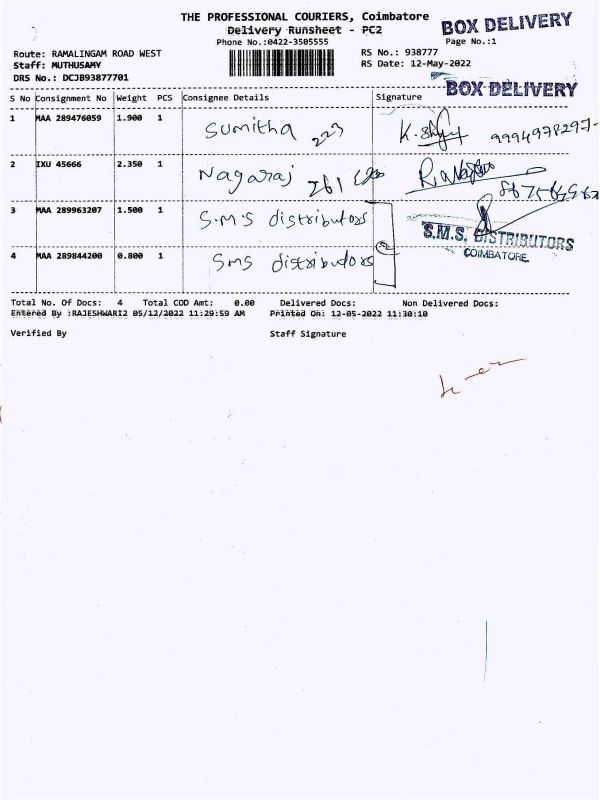 THE PROFESSIONAL COURIERS, Coimbatore
BOX DELIVERY
Delivery Runsheet - PC2
Phone No.:0422-3505555
Page No.:1
Route: RAMALINGAM ROAD WEST
RS No.: 938777
Staff: MUTHUSAMY
RS Date: 12-May-2022
DRS No.: DCJB93877701
BOX DELIVERY
S No Consignment No Weight PCS Consignee Details Signature
1 MAA 289476059 1.900 1 Sumitha 223 9994978297
2 IXU 45666 2.350 1 Nagaraj 261
3 MAA 289963207 1.500 1 S.M.S distributors
S.M.S. DISTRIBUTORS
COIMBATORE
4 MAA 289844200 0.800 1 Sms distributors
Total No. Of Docs: 4 Total COD Amt: 0.00 Delivered Docs: Non Delivered Docs:
Entered By :RAJESHWARI2 05/12/2022 11:29:59 AM Printed On: 12-05-2022 11:30:10
Verified By Staff Signature